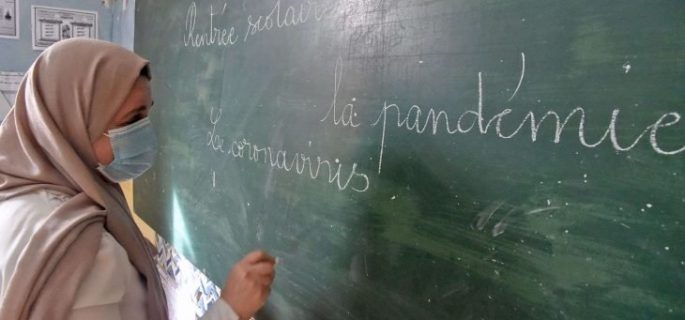 Rentrée scolaire
la pandémie
Le coronavirus